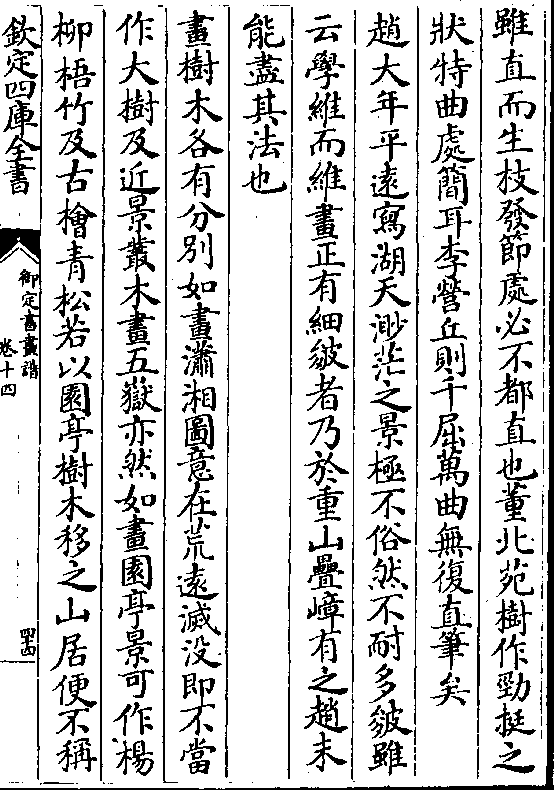 雖直而生枝發節處必不都直也董北苑樹作勁挺之
狀特曲處簡耳李營丘則千屈萬曲無復直筆矣
趙大年平遠寫湖天渺茫之景極不俗然不耐多皴雖
云學維而維畫正有細皴者乃於重山疊嶂有之趙未
能盡其法也
畫樹木各有分別如畫瀟湘圖意在荒遠滅没即不當
作大樹及近景叢木畫五嶽亦然如畫園亭景可作楊
柳梧竹及古檜青松若以園亭樹木移之山居便不稱
欽定四庫全書
御定書畫譜
卷十四
四